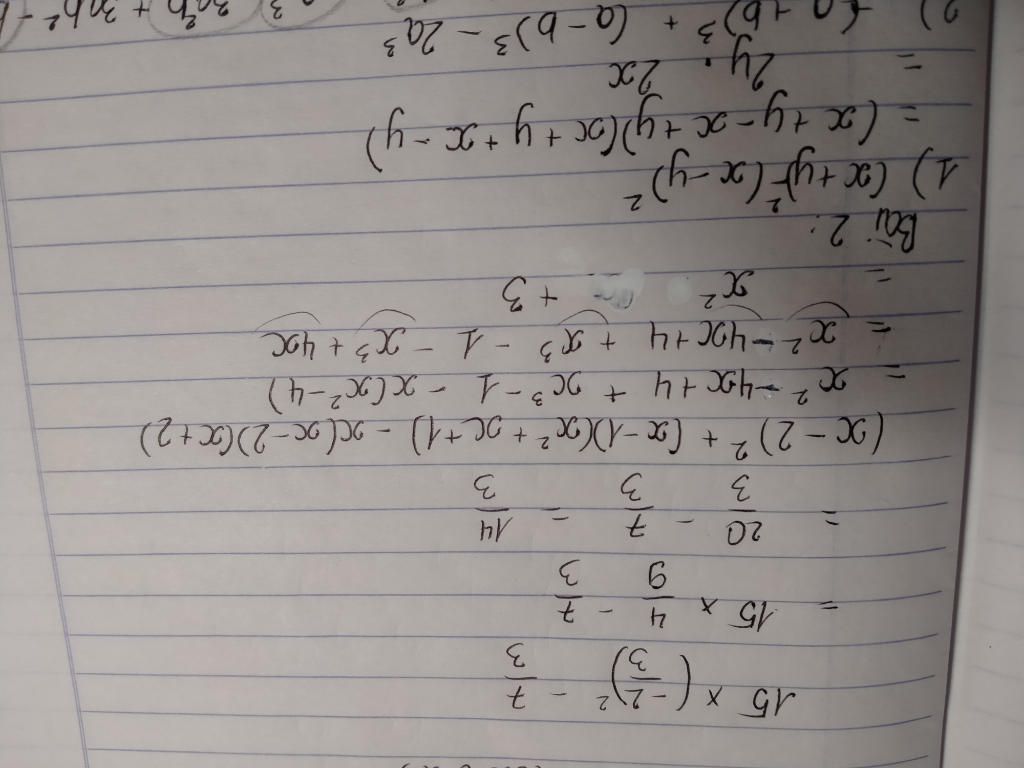 15 × (-2/3)² - 7/3
= 15 × 4/9 - 7/3
= 20/3 - 7/3 = 14/3
(x - 2)² + (x-1)(x² + x+1) - x(x-2)(x+2)
= x² - 4x + 4 + x³ - 1 - x(x² - 4)
= x² - 4x + 4 + x³ - 1 - x³ + 4x
= x² + 3
Bài 2:
1) (x+y)² - (x-y)²
= (x + y - x + y)(x + y + x - y)
= 2y . 2x
2) (a+b)³ + (a-b)³ - 2a³